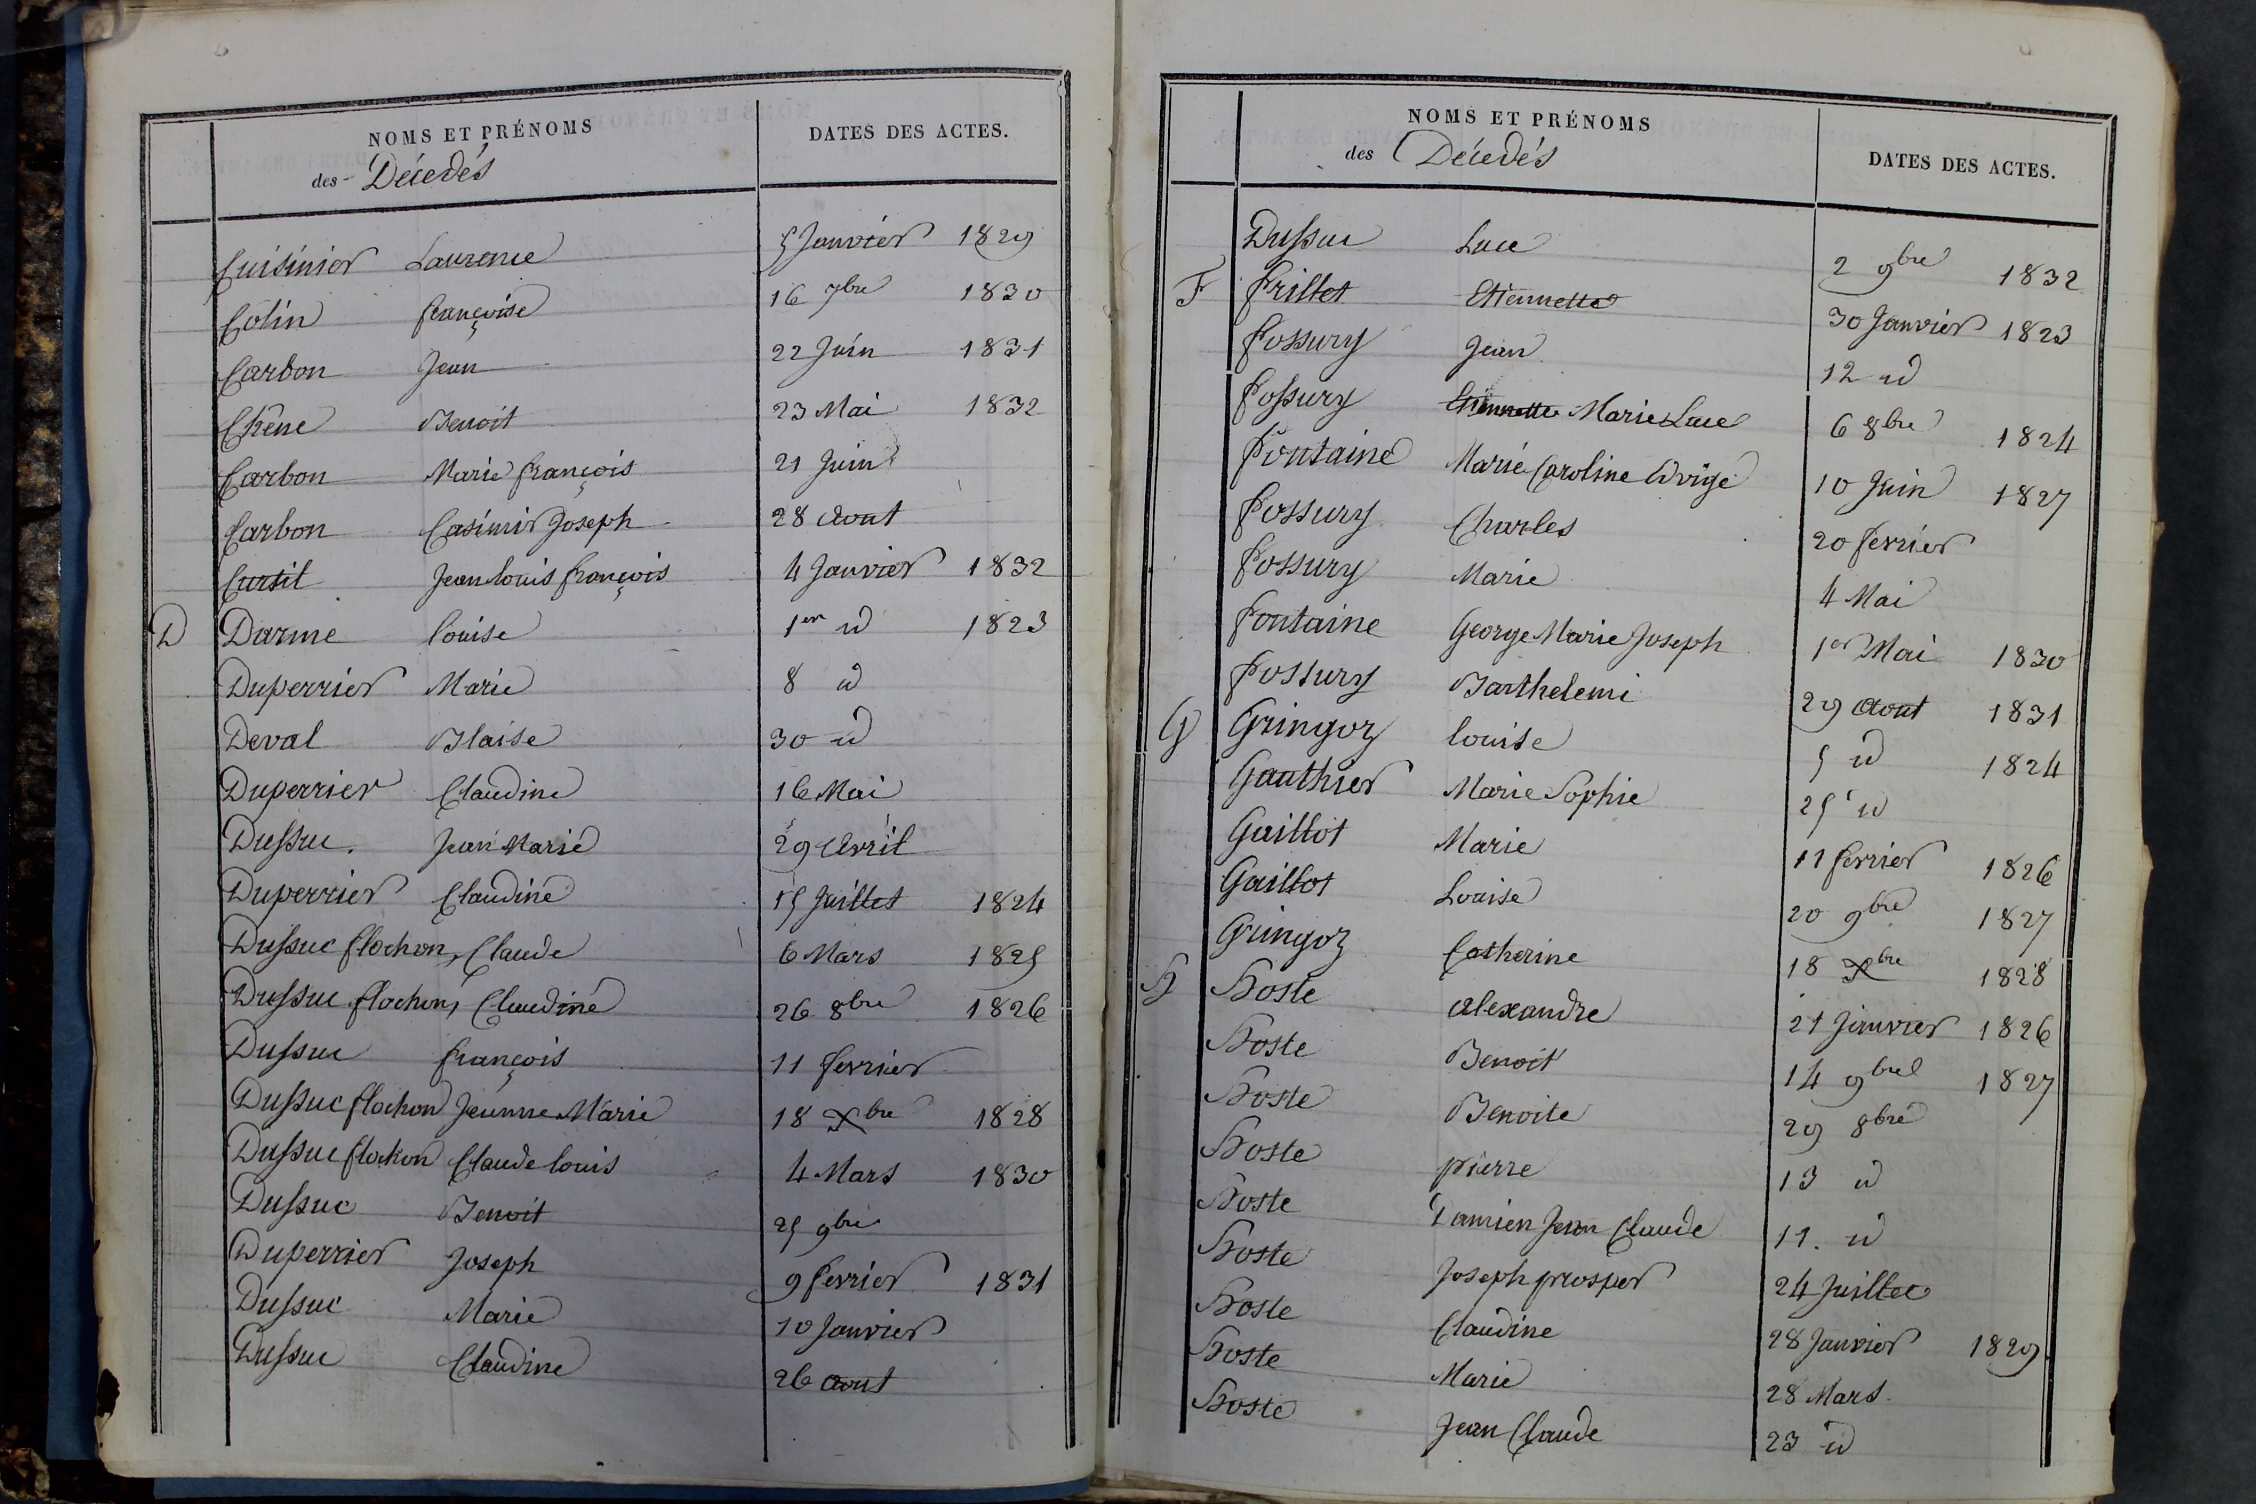 NOMS ET PRÉNOMS DATES DES ACTES.
des Décedés
Cuisinier Laurence 5 Janvier 1829
Colin françoise 16 7bre 1830
Carbon Jean 22 Juin 1831
Chêne Benoit 23 Mai 1832
Carbon Marie françois 21 Juin
Carbon Casimir Joseph 28 Aout
Curtil Jean louis françois 4 Janvier 1832
D Darme louise 1er id 1823
Duperrier Marie 8 id
Deval Blaise 30 id
Duperrier Claudine 16 Mai
Dussuc Jean Marie 29 Avril
Duperrier Claudine 15 Juillet 1824
Dussuc flochon, Claude 6 Mars 1825
Dussuc flochon, Claudine 26 8bre 1826
Dussuc françois 11 fevrier
Dussuc flochon Jeanne Marie 18 Xbre 1828
Dussuc flochon Claude louis 4 Mars 1830
Dussuc Benoit 25 9bre
Duperrier Joseph 9 fevrier 1831
Dussuc Marie 10 Janvier
Dussuc Claudine 26 Aout
NOMS ET PRÉNOMS
des Décedés DATES DES ACTES.
Dussuc Luce 2 9bre 1832
F Frillet Etiennette 30 Janvier 1823
Fossury Jean 12 id
Fossury Etiennette Marie Luce 6 8bre 1824
Fontaine Marie Caroline Edvige 10 Juin 1827
Fossury Charles 20 fevrier
Fossury Marie 4 Mai
Fontaine George Marie Joseph 1er Mai 1830
Fossury Barthelemi 29 Aout 1831
G Gringoz louise 5 id 1824
Gauthier Marie Sophie 25 id
Gaillot Marie 11 fevrier 1826
Gaillot Louise 20 9bre 1827
Gringoz Catherine 18 Xbre 1828
H Hoste Alexandre 21 Janvier 1826
Hoste Benoit 14 9bre 1827
Hoste Benoite 29 8bre
Hoste pierre 13 id
Hoste Damien Jean Claude 11. id
Hoste Joseph prosper 24 Juillet
Hoste Claudine 28 Janvier 1829
Hoste Marie 28 Mars
Hoste Jean Claude 23 id